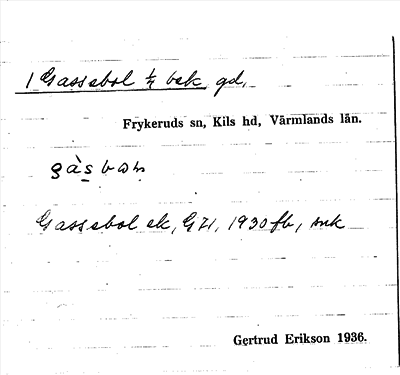 1 Gassebol ¼ bek. gd.
Frykeruds sn, Kils hd, Värmlands län.
Gassebol ek, G71, 1930 fb, snk
Gertrud Erikson 1936.